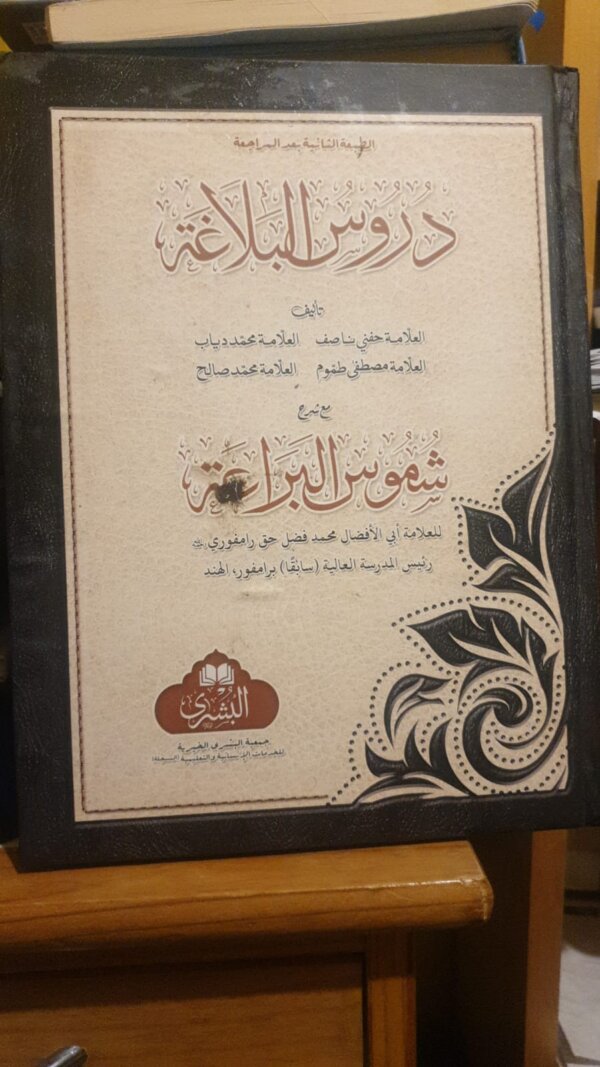 الطبعة الثانية بعد المراجعة
دُرُوسُ البَلَاغَة
تأليف
العلّامة حفني ناصف العلّامة محمّد دياب
العلّامة مصطفى طمّوم العلّامة محمّد صالح
مع شرح
شُمُوسُ البَرَاعَة
للعلامة أبي الأفضال محمد فضل حق رامفوري
رئيس المدرسة العالية (سابقًا) برامفور، الهند
البُشرى
جمعية البشرى الخيرية
للخدمات الإنسانية والتعليمية (المسجلة)